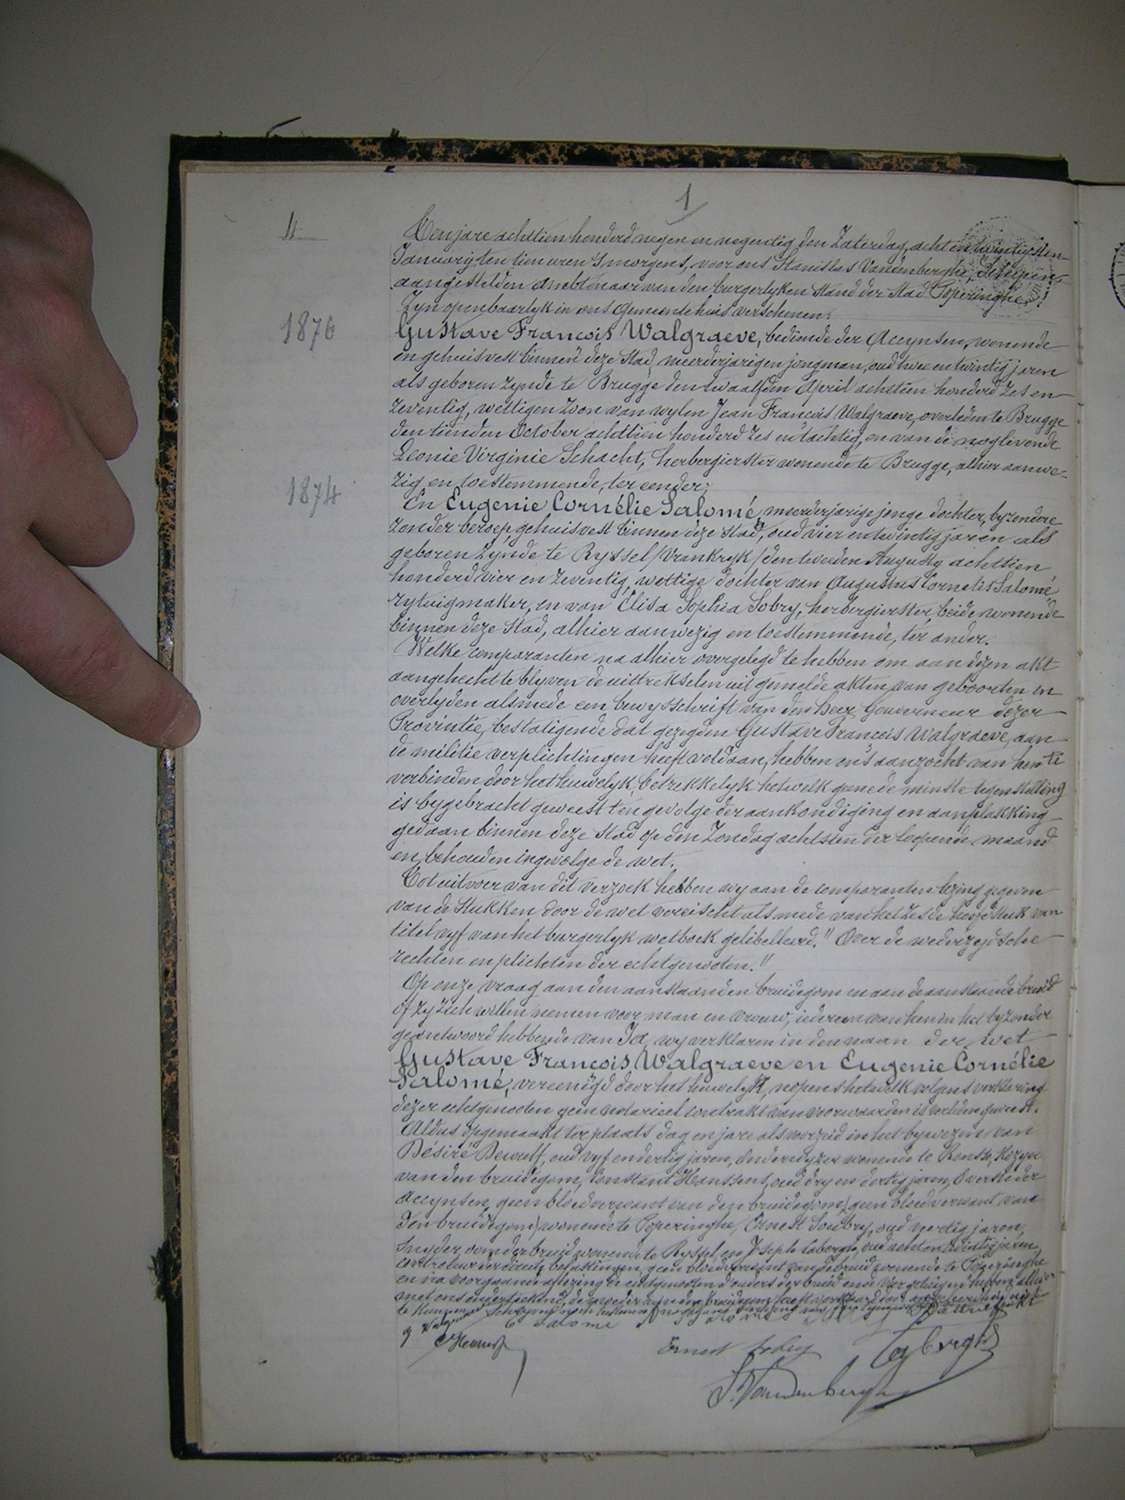 1
4
Ten jare achttien honderd negen en negentig, den Zaterdag, acht en twintigsten
January ten tien uren 's morgens, voor ons Stanislas Vandenberghe, Schepen,
aangestelden ambtenaar van den burgerlyken stand der Stad Poperinghe
Zyn openbaarlyk in ons Gemeentehuis verschenen:
1876
Gustave François Walgraeve, bediende der Accynsen, wonende
en gehuisvest binnen deze Stad, meerderjarigen jongman, oud twee en twintig jaren
als geboren zynde te Brugge den twaalfden April achttien honderd zes en
zeventig, wettigen zoon van wylen Jean François Walgraeve, overleden te Brugge
den tienden October achttien honderd zes en tachtig, en van de noglevende
Leonie Virginie Schacht, herbergierster wonende te Brugge, alhier aanwe-
zig en toestemmende, ter eender;
1874
En Eugenie Cornélie Salomé, meerderjarige jonge dochter, byzondere
zonder beroep gehuisvest binnen deze Stad, oud vier en twintig jaren als
geboren zynde te Ryssel /Vrankryk/ den tweeden Augusty achttien
honderd vier en zeventig, wettige dochter van Augustus Cornelis Salomé
rytuigmaker, en van Elisa Sophia Sobry, herbergierster, beide wonende
binnen deze Stad, alhier aanwezig en toestemmende, ter ander.
Welke comparanten na alhier overgelegd te hebben om aan dezen akt
aangehecht te blyven de uittrekselen uit gemelde akten van geboorten en
overlyden alsmede een bewysschrift van den heer Gouverneur dezer
Provintie, bestatigende dat gezegden Gustave François Walgraeve, aan
de militie verplichtingen heeft voldaan, hebben ons aanzocht van hen te
verbinden door het huwelyk, betrekkelyk hetwelk geene de minste tegenstelling
is bygebracht geweest ten gevolge der aankondiging en aanplakking
gedaan binnen deze Stad op den Zondag achtsten der loopende maand
en behouden ingevolge de wet.
Tot uitvoer van dit verzoek hebben wy aan de comparanten lezing gegeven
van de stukken door de wet vereischt alsmede van het zesde hoofdstuk van
titel vyf van het burgerlyk wetboek gelibelleerd." Over de wederzydsche
rechten en plichten der echtgenooten."
Op onze vraag aan den aanstaanden bruidegom en aan de aanstaande bruid
of zy zich willen nemen voor man en vrouw, iedereen van hen in het byzonder
geantwoord hebbende van Ja, wy verklaren in den naam der wet
Gustave François Walgraeve en Eugenie Cornélie
Salomé, vereenigd door het huwelyk, nopens hetwelk volgens verklaring
dezer echtgenooten geen notarieel contrakt van voorwaarden is verleden geweest.
Aldus opgemaakt ter plaats dag en jare als voorzeid in het bywezen van
Désiré Dewulf, oud vyf en dertig jaren, onderwyzer wonende te
van den bruidegom, Constant Hanssens, oud dry en dertig jaren, Overste der
Accynsen, geen bloedverwant van den bruidegom, geen bloedverwant van
den bruidegom, wonende te Poperinghe, Ernest Soebry, oud veertig jaren,
snyder, oom der bruid wonende te Ryssel, en Joseph Caberghs, oud acht en twintig jaren
controleur der directe belastingen, geen bloedverwant van de bruid wonende te Poperinghe
en na voorgaande lezing de echtgenooten d'ouders der bruid ende de getuigen hebben alhier
met ons onderteekend, de moeder van den bruidegom heeft verklaard
te kunnen
G Walgraeve
E Salomé
Ernest Sobry
Caberghs
S. Vandenberghe